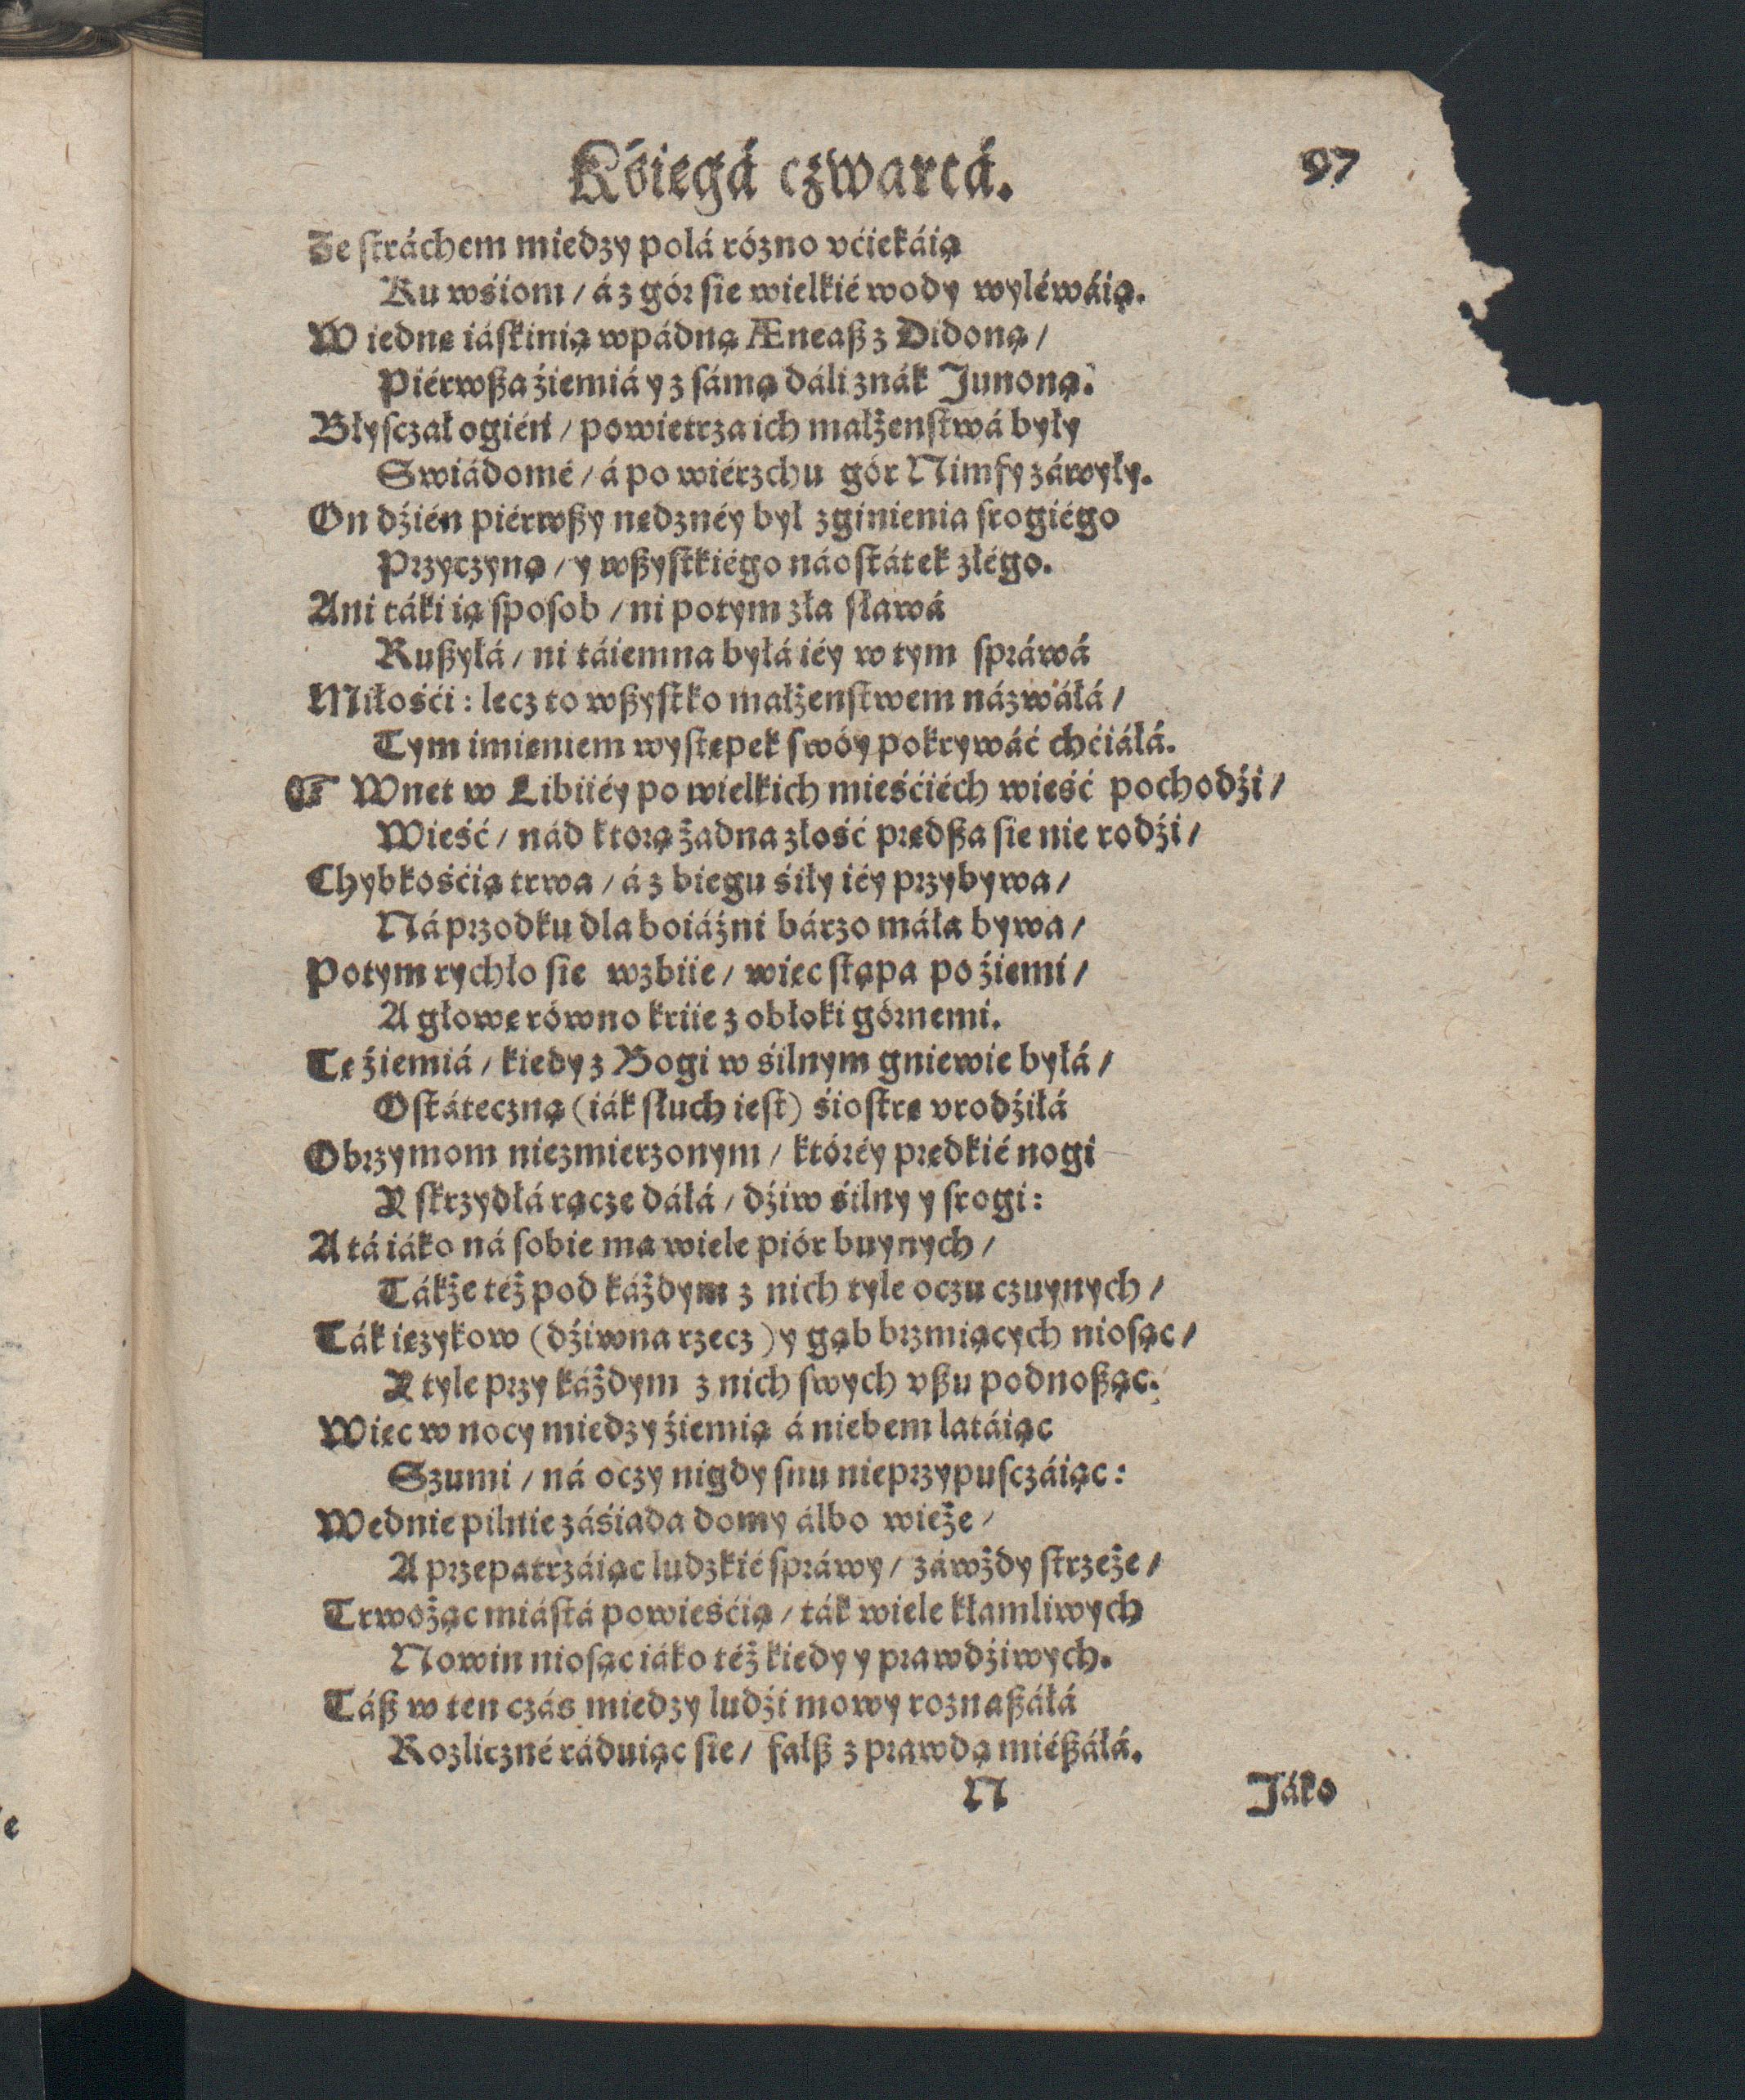 Kśięgá czwartá. 97
Ze ſtráchem miedzy polá rózno vćiekáią
Ku wśiom / á z gór ſie wielkié wody wyléwáią.
W iednę iáſkinią wpádną Æneaß z Didoną /
Piérwßa źiemiá y z ſámą dáli znák Junoną.
Błyſczał ogień / powietrza ich małżenſtwá były
Swiádomé / á po wiérzchu gór Nimfy záwyły.
On dźién piérwßy nędznéy był zginienia ſrogiégo
Przyczyną / y wßyſtkiégo náoſtátek złégo.
Ani táki ią ſpoſob / ni potym zła ſławá
Rußyłá / ni táiemna byłá iéy w tym ſpráwá
Miłośći : lecz to wßyſtko małżenſtwem názwáłá /
Tym imieniem wyſtępek ſwóy pokrywáć chćiáłá.
☞ Wnet w Libiiéy po wielkich mieśćiéch wieść pochodźi /
Wieść / nád ktorą żadna złość prędßa ſie nie rodźi /
Chybkośćią trwa / á z biegu śiły iéy przybywa /
Ná przodku dla boiáźni bárzo máła bywa /
Potym rychło ſie wzbiie / więc ſtąpa po źiemi /
A głowę równo kriie z obłoki górnemi.
Tę źiemiá / kiedy z Bogi w śilnym gniewie byłá /
Oſtáteczną (iák słuch ieſt) śioſtrę vrodźiłá
Obrzymom niezmierzonym / któréy prędkié nogi
Y ſkrzydłá rącze dáłá / dźiw śilny y ſrogi :
A tá iáko ná ſobie ma wiele piór buynych /
Tákże téż pod káżdym z nich tyle oczu czuynych /
Ták ięzykow (dźiwna rzecz) y gąb brzmiących nioſąc /
Y tyle przy káżdym z nich ſwych vßu podnoßąc.
Więc w nocy miedzy źiemią á niebem latáiąc
Szumi / ná oczy nigdy ſnu nieprzypuſczáiąc :
Wednie pilnie záśiada domy álbo wieże /
A przepatrzáiąc ludzkié ſpráwy / záwżdy ſtrzeże /
Trwożąc miáſtá powieśćią / ták wiele kłamliwych
Nowin nioſąc iáko téż kiedy y prawdźiwych.
Táß w ten czás miedzy ludźi mowy roznaßáłá
Rozliczné ráduiąc ſie / fałß z prawdą miéßáłá.
N Jáko